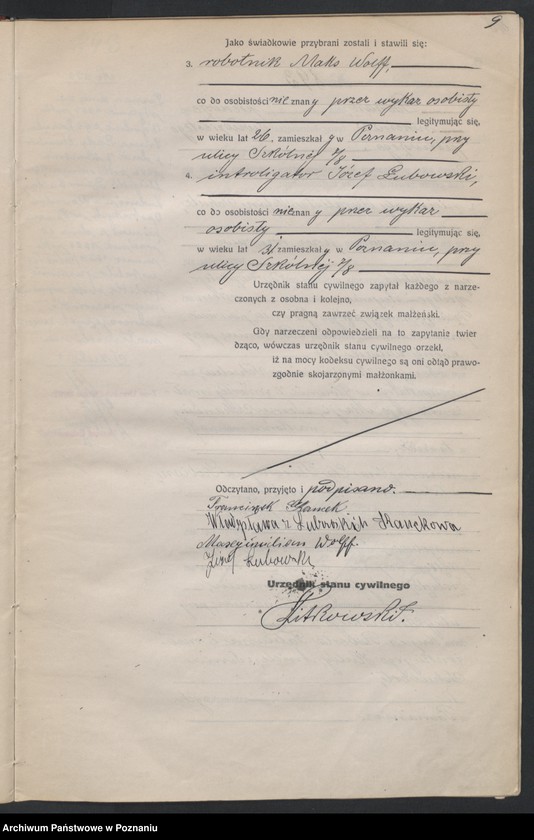 9
Jako świadkowie przybrani zostali i stawili się:
3. robotnik Maks Wolff,
co do osobistości nieznany przez wykaz osobisty
legitymując się,
w wieku lat 26, zamieszkały w Poznaniu, przy
ulicy Szkólnej 7/8
4. introligator Józef Lubowski,
co do osobistości nieznany przez wykaz
osobisty legitymując się,
w wieku lat 31 zamieszkały w Poznaniu, przy
ulicy Szkólnej 7/8
Urzędnik stanu cywilnego zapytał każdego z narze-
czonych z osobna i kolejno,
czy pragną zawrzeć związek małżeński.
Gdy narzeczeni odpowiedzieli na to zapytanie twier
dząco, wówczas urzędnik stanu cywilnego orzekł,
iż na mocy kodeksu cywilnego są oni odtąd prawo-
zgodnie skojarzonymi małżonkami.
Odczytano, przyjęto i podpisano.
Franciszek
Władysława z Lubowskich
Maksymilian Wolff.
Józef Lubowski
Urzędnik stanu cywilnego
Witkowski.
Archiwum Państwowe w Poznaniu